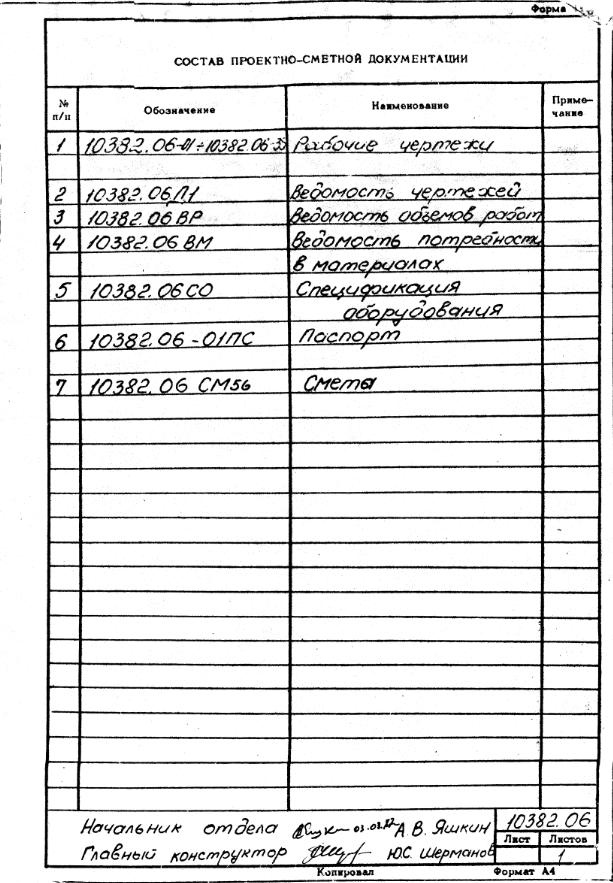 Форма
СОСТАВ ПРОЕКТНО-СМЕТНОЙ ДОКУМЕНТАЦИИ
№ п/п Обозначение Наименование Приме-чание
1 10382.06-01÷10382.06-35 Рабочие чертежи
2 10382.06Л1 Ведомость чертежей
3 10382.06ВР Ведомость объемов работ
4 10382.06ВМ Ведомость потребност
в материалах
5 10382.06СО Спецификация
оборудования
6 10382.06-01ПС Паспорт
7 10382.06 СМ56 Сметы
Начальник отдела 03.03.82 А.В. Яшкин 10382.06
Лист Листов
Главный конструктор Ю.С. Шерманов 1
Копировал Формат А4